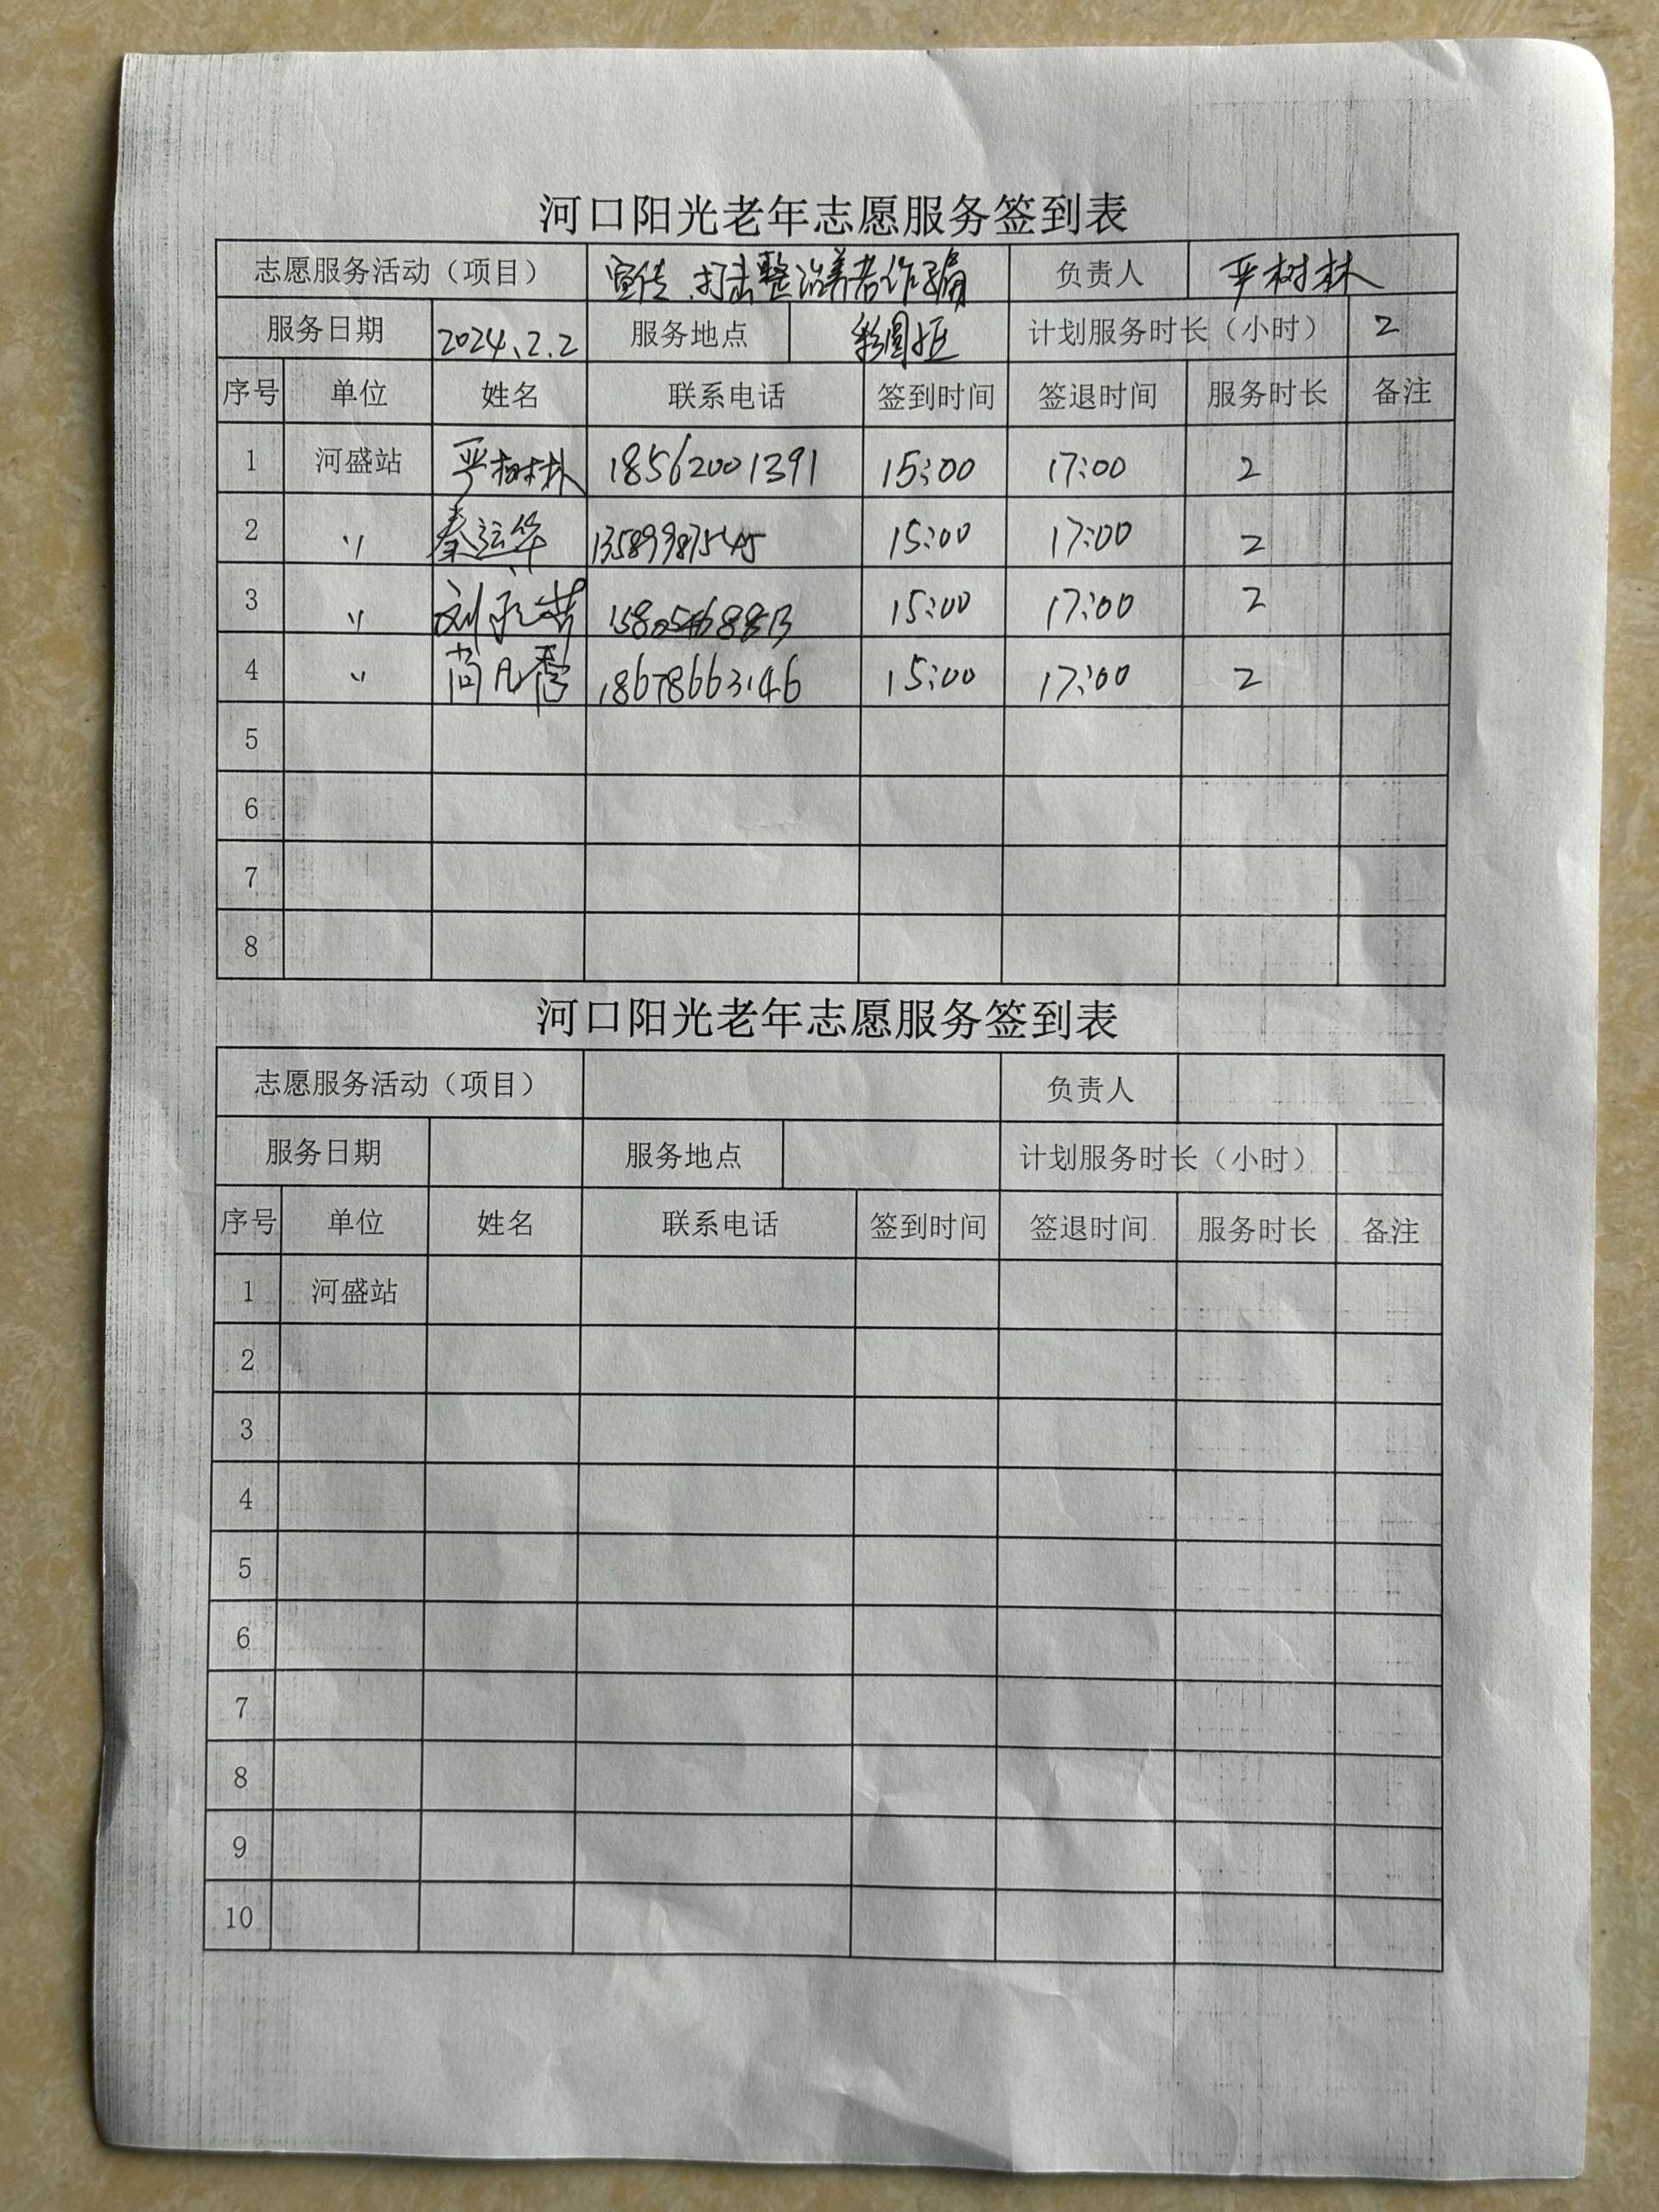 河口阳光老年志愿服务签到表
志愿服务活动（项目） 宣传、打击整治养老诈骗 负责人 严树林
服务日期 2024.2.2 服务地点 计划服务时长（小时） 2
序号 单位 姓名 联系电话 签到时间 签退时间 服务时长 备注
1 河盛站 严树林 18562001391 15:00 17:00 2
2 〃 秦运华 13589987545 15:00 17:00 2
3 〃 15:00 17:00 2
4 〃 尚凡香 18678663146 15:00 17:00 2
5
6
7
8
河口阳光老年志愿服务签到表
志愿服务活动（项目） 负责人
服务日期 服务地点 计划服务时长（小时）
序号 单位 姓名 联系电话 签到时间 签退时间 服务时长 备注
1 河盛站
2
3
4
5
6
7
8
9
10